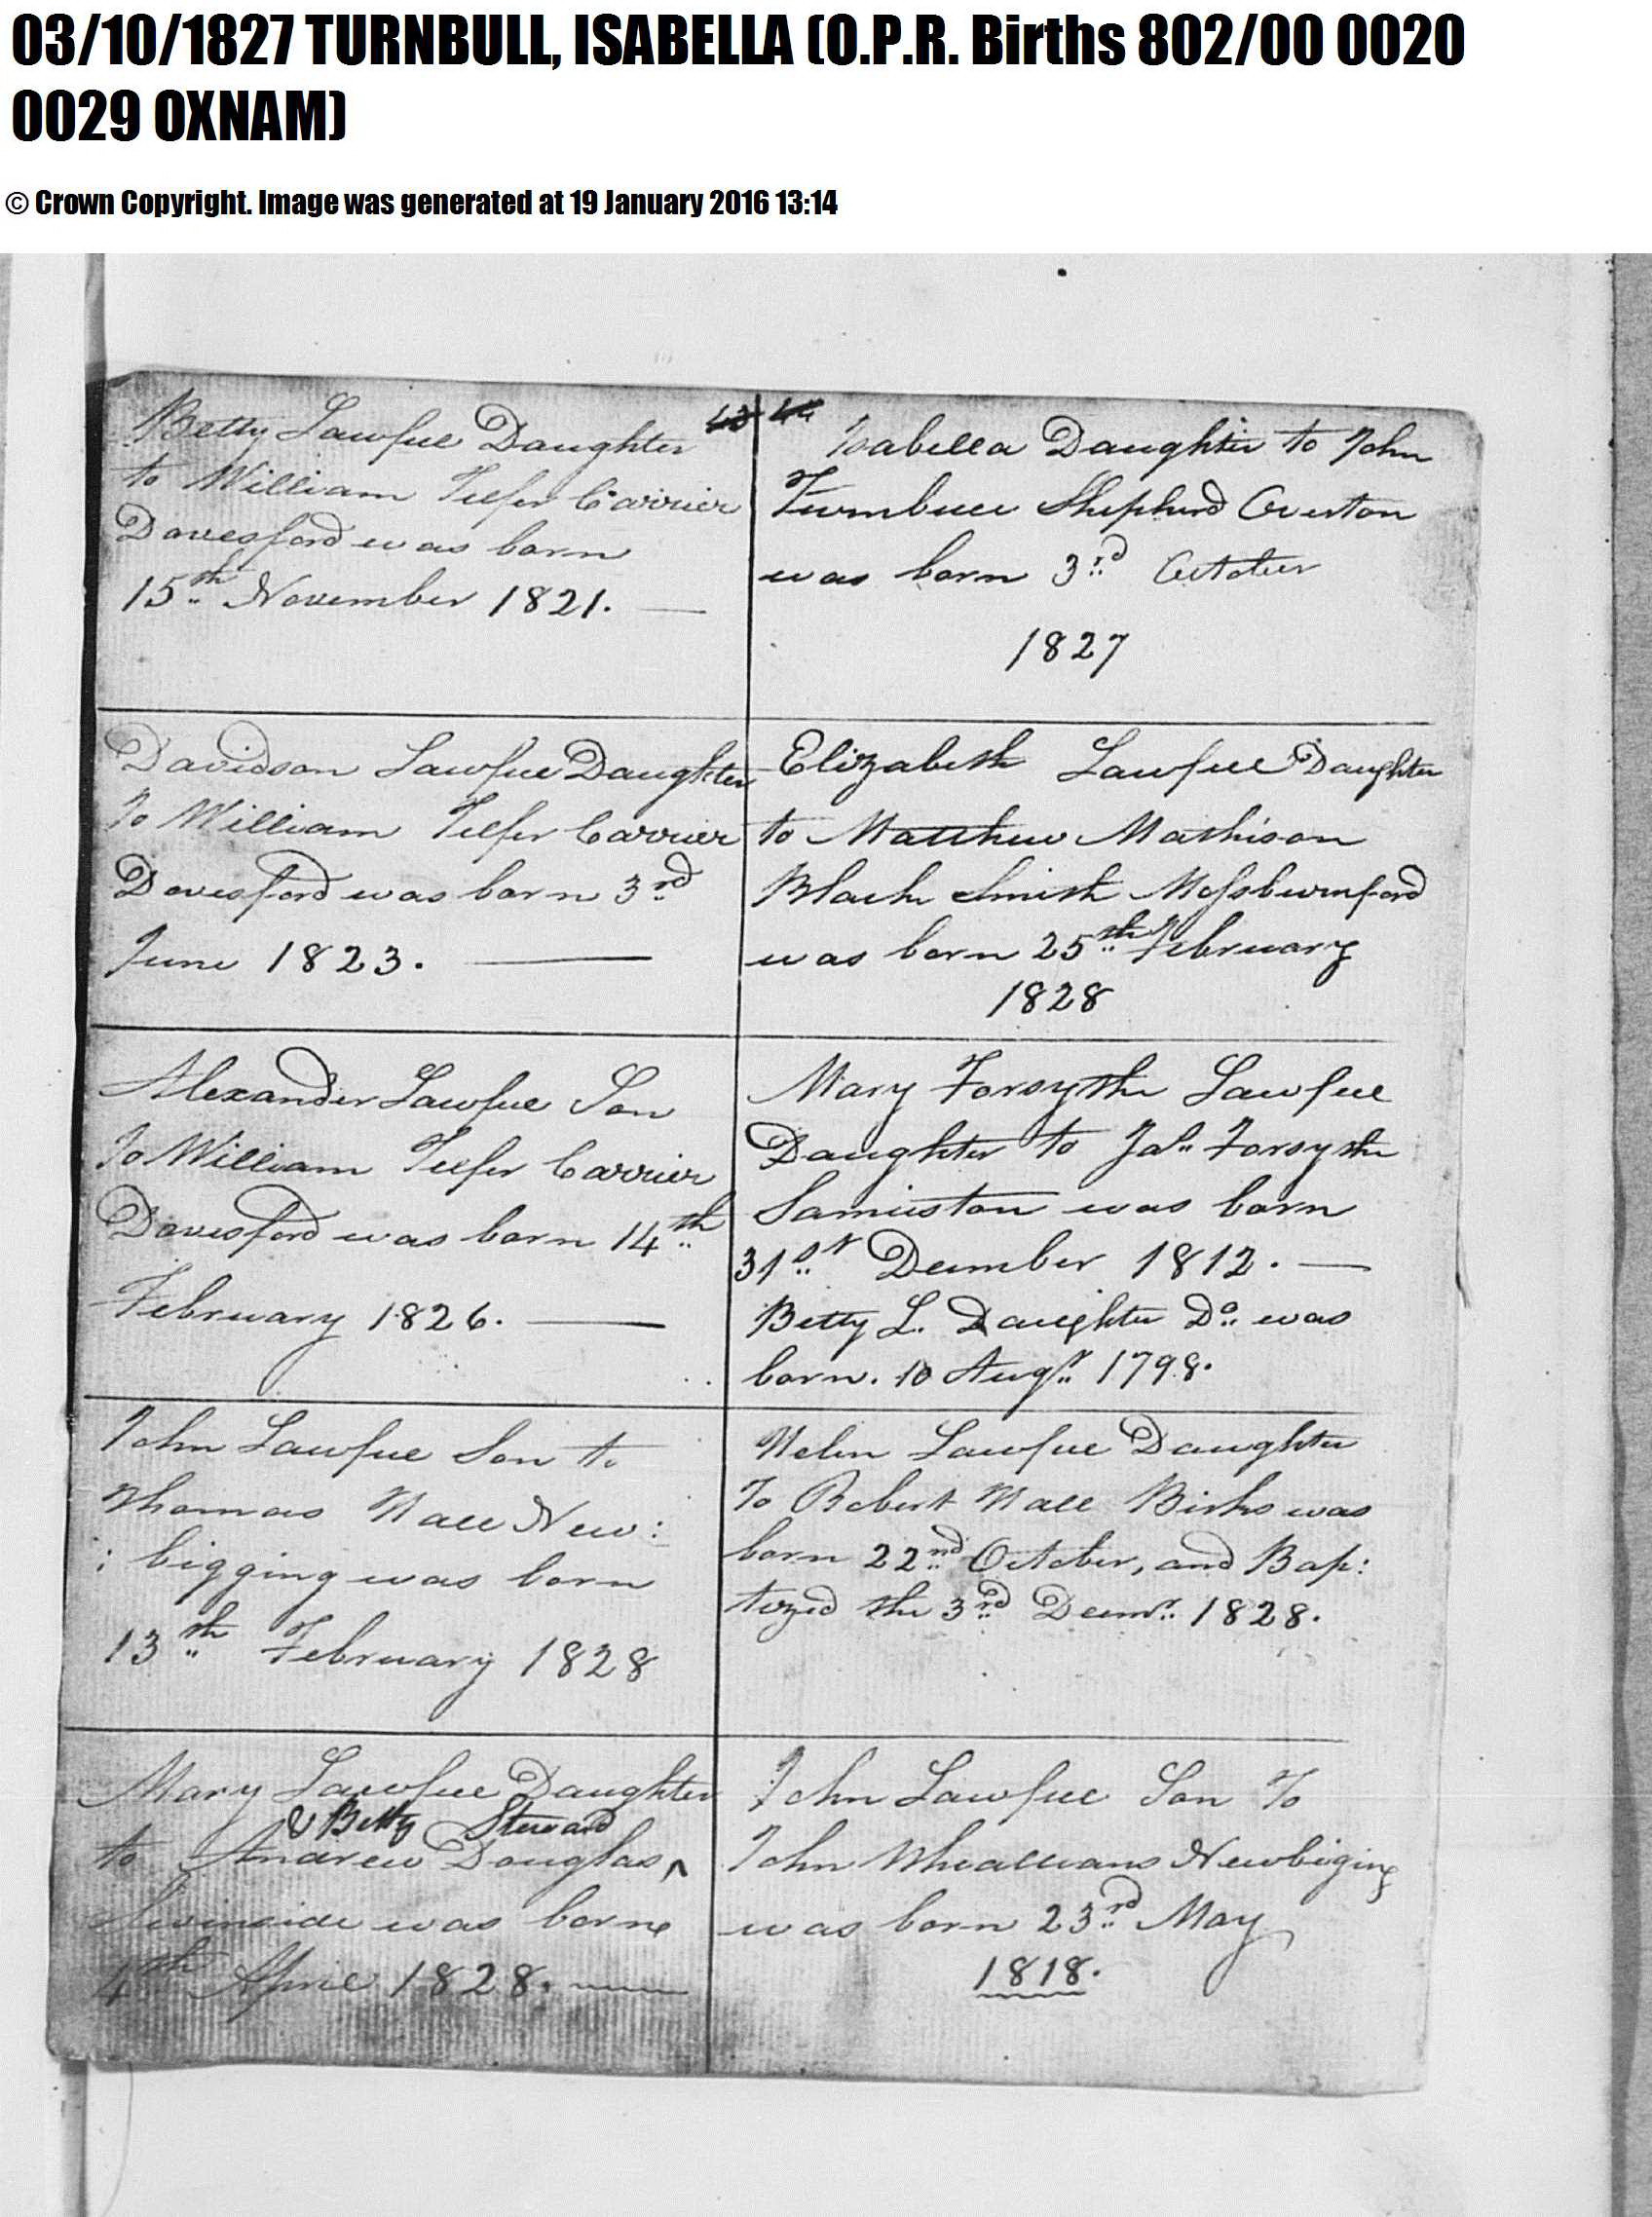 03/10/1827 TURNBULL, ISABELLA (O.P.R. Births 802/00 0020
0029 OXNAM)
© Crown Copyright. Image was generated at 19 January 2016 13:14
43
Betty Lawful Daughter
to William Telfer Carrier
Dovesford was born
15th November 1821.
Davidson Lawful Daughter
To William Telfer Carrier
Dovesford was born 3rd
June 1823.
Alexander Lawful Son
To William Telfer Carrier
Dovesford was born 14th
February 1826.
John Lawful Son to
Thomas Hall New:
: bigging was born
13th February 1828
Mary Lawful Daughter
& Betty Steward
to Andrew Douglas ^
Swinside was born
4th April 1828.
44
Isabella Daughter to John
Turnbull Shepherd Overton
was born 3rd October
1827
Elizabeth Lawful Daughter
to Matthew Mathison
Black Smith Mossburnford
was born 25th February
1828
Mary Forsyth Lawful
Daughter to Jas. Forsyth
Samieston was born
31st December 1812.
Betty L. Daughter Do. was
born. 10 Augt. 1798.
Helen Lawful Daughter
To Robert Hall Birks was
born 22nd October, and Bap:
tized the 3rd Decmr. 1828.
John Lawful Son To
John Whillians Newbiging
was born 23rd May
1818.